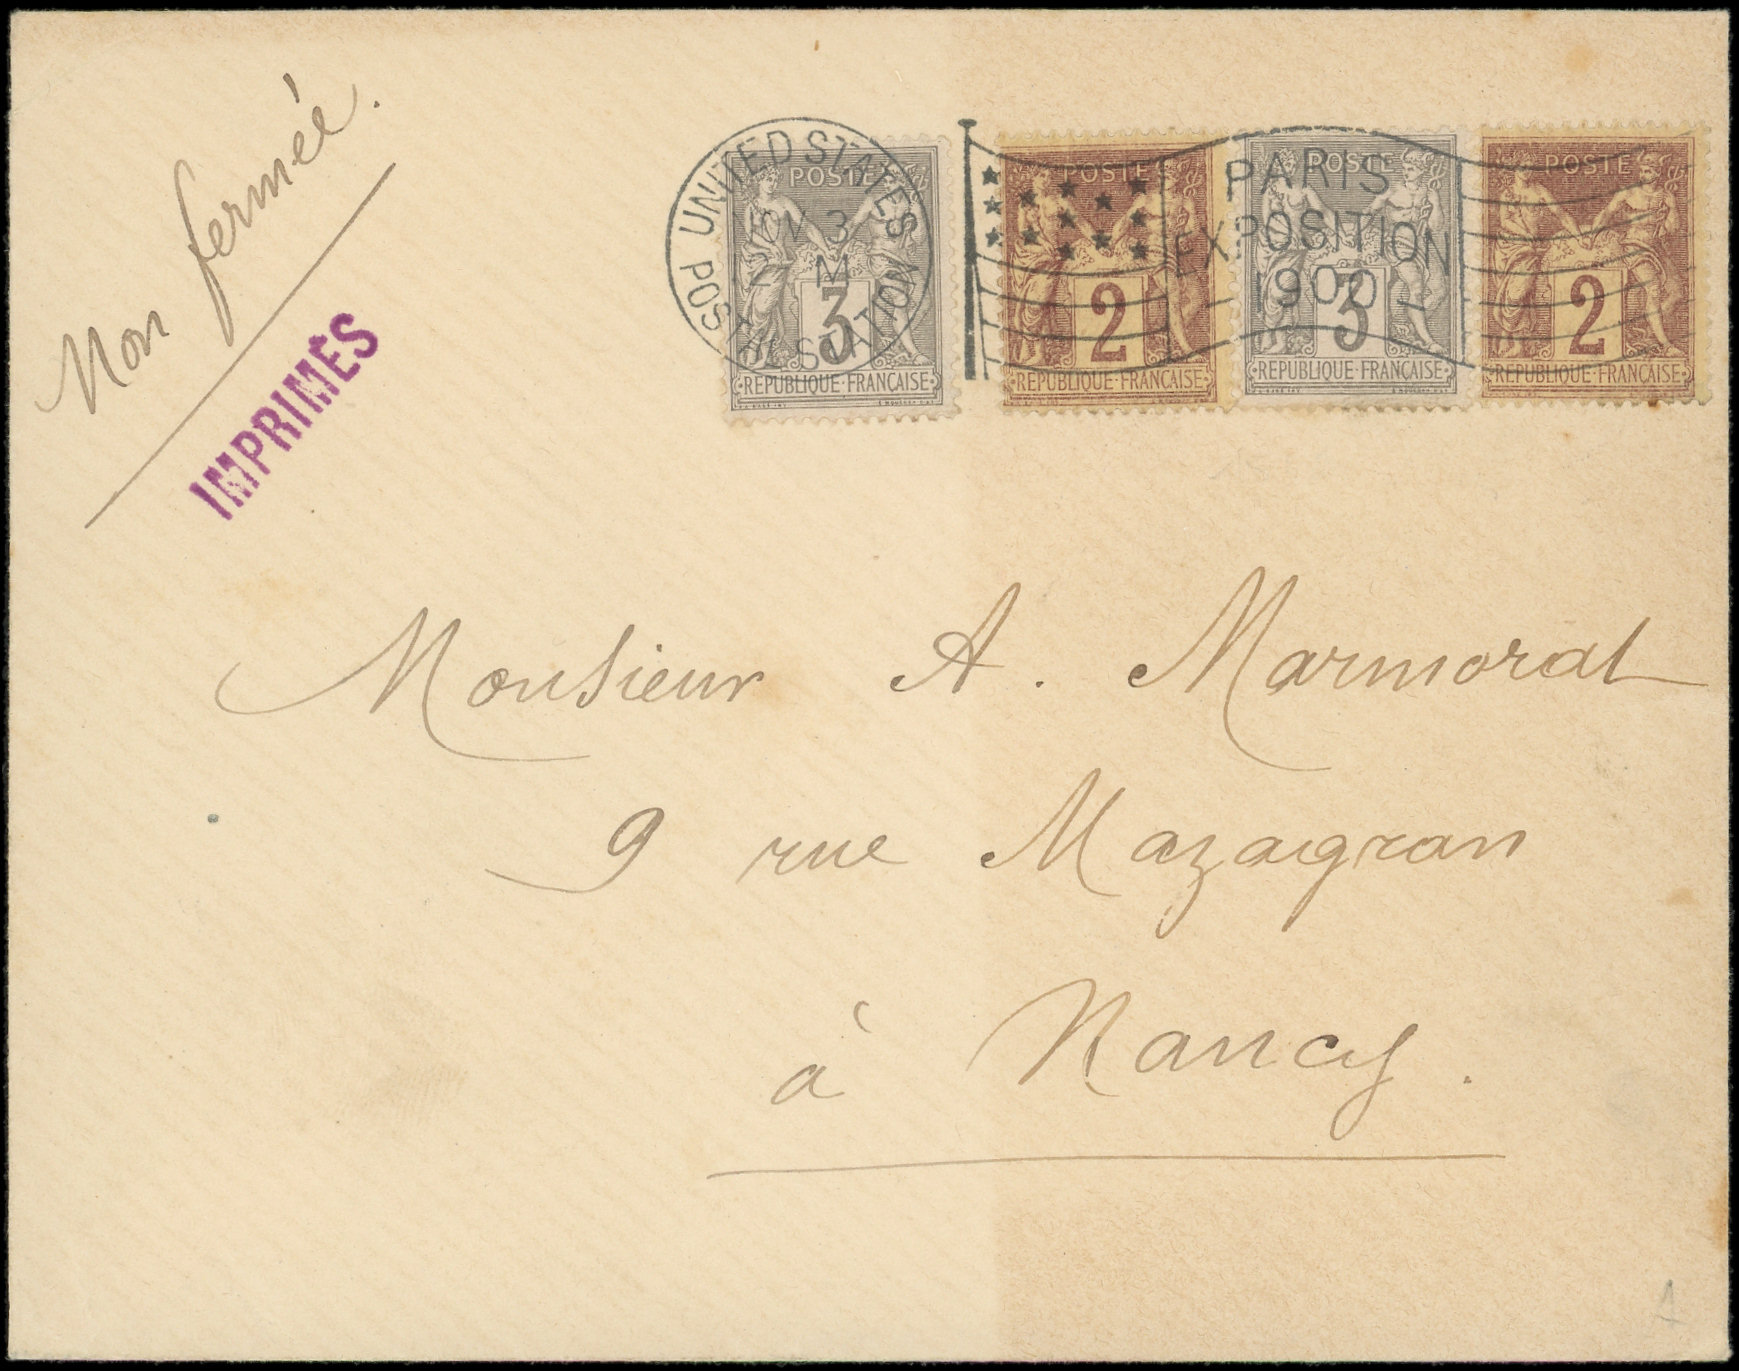 Non fermée.
IMPRIMÉS
UNITED STATES
POSTAL STATION
NOV 3
2 M
PARIS
EXPOSITION
1900
POSTE
3
REPUBLIQUE FRANÇAISE
POSTE
2
REPUBLIQUE FRANÇAISE
POSTE
3
REPUBLIQUE FRANÇAISE
POSTE
2
REPUBLIQUE FRANÇAISE
Monsieur A. Marmorat
9 rue Mazagran
à Nancy.
1